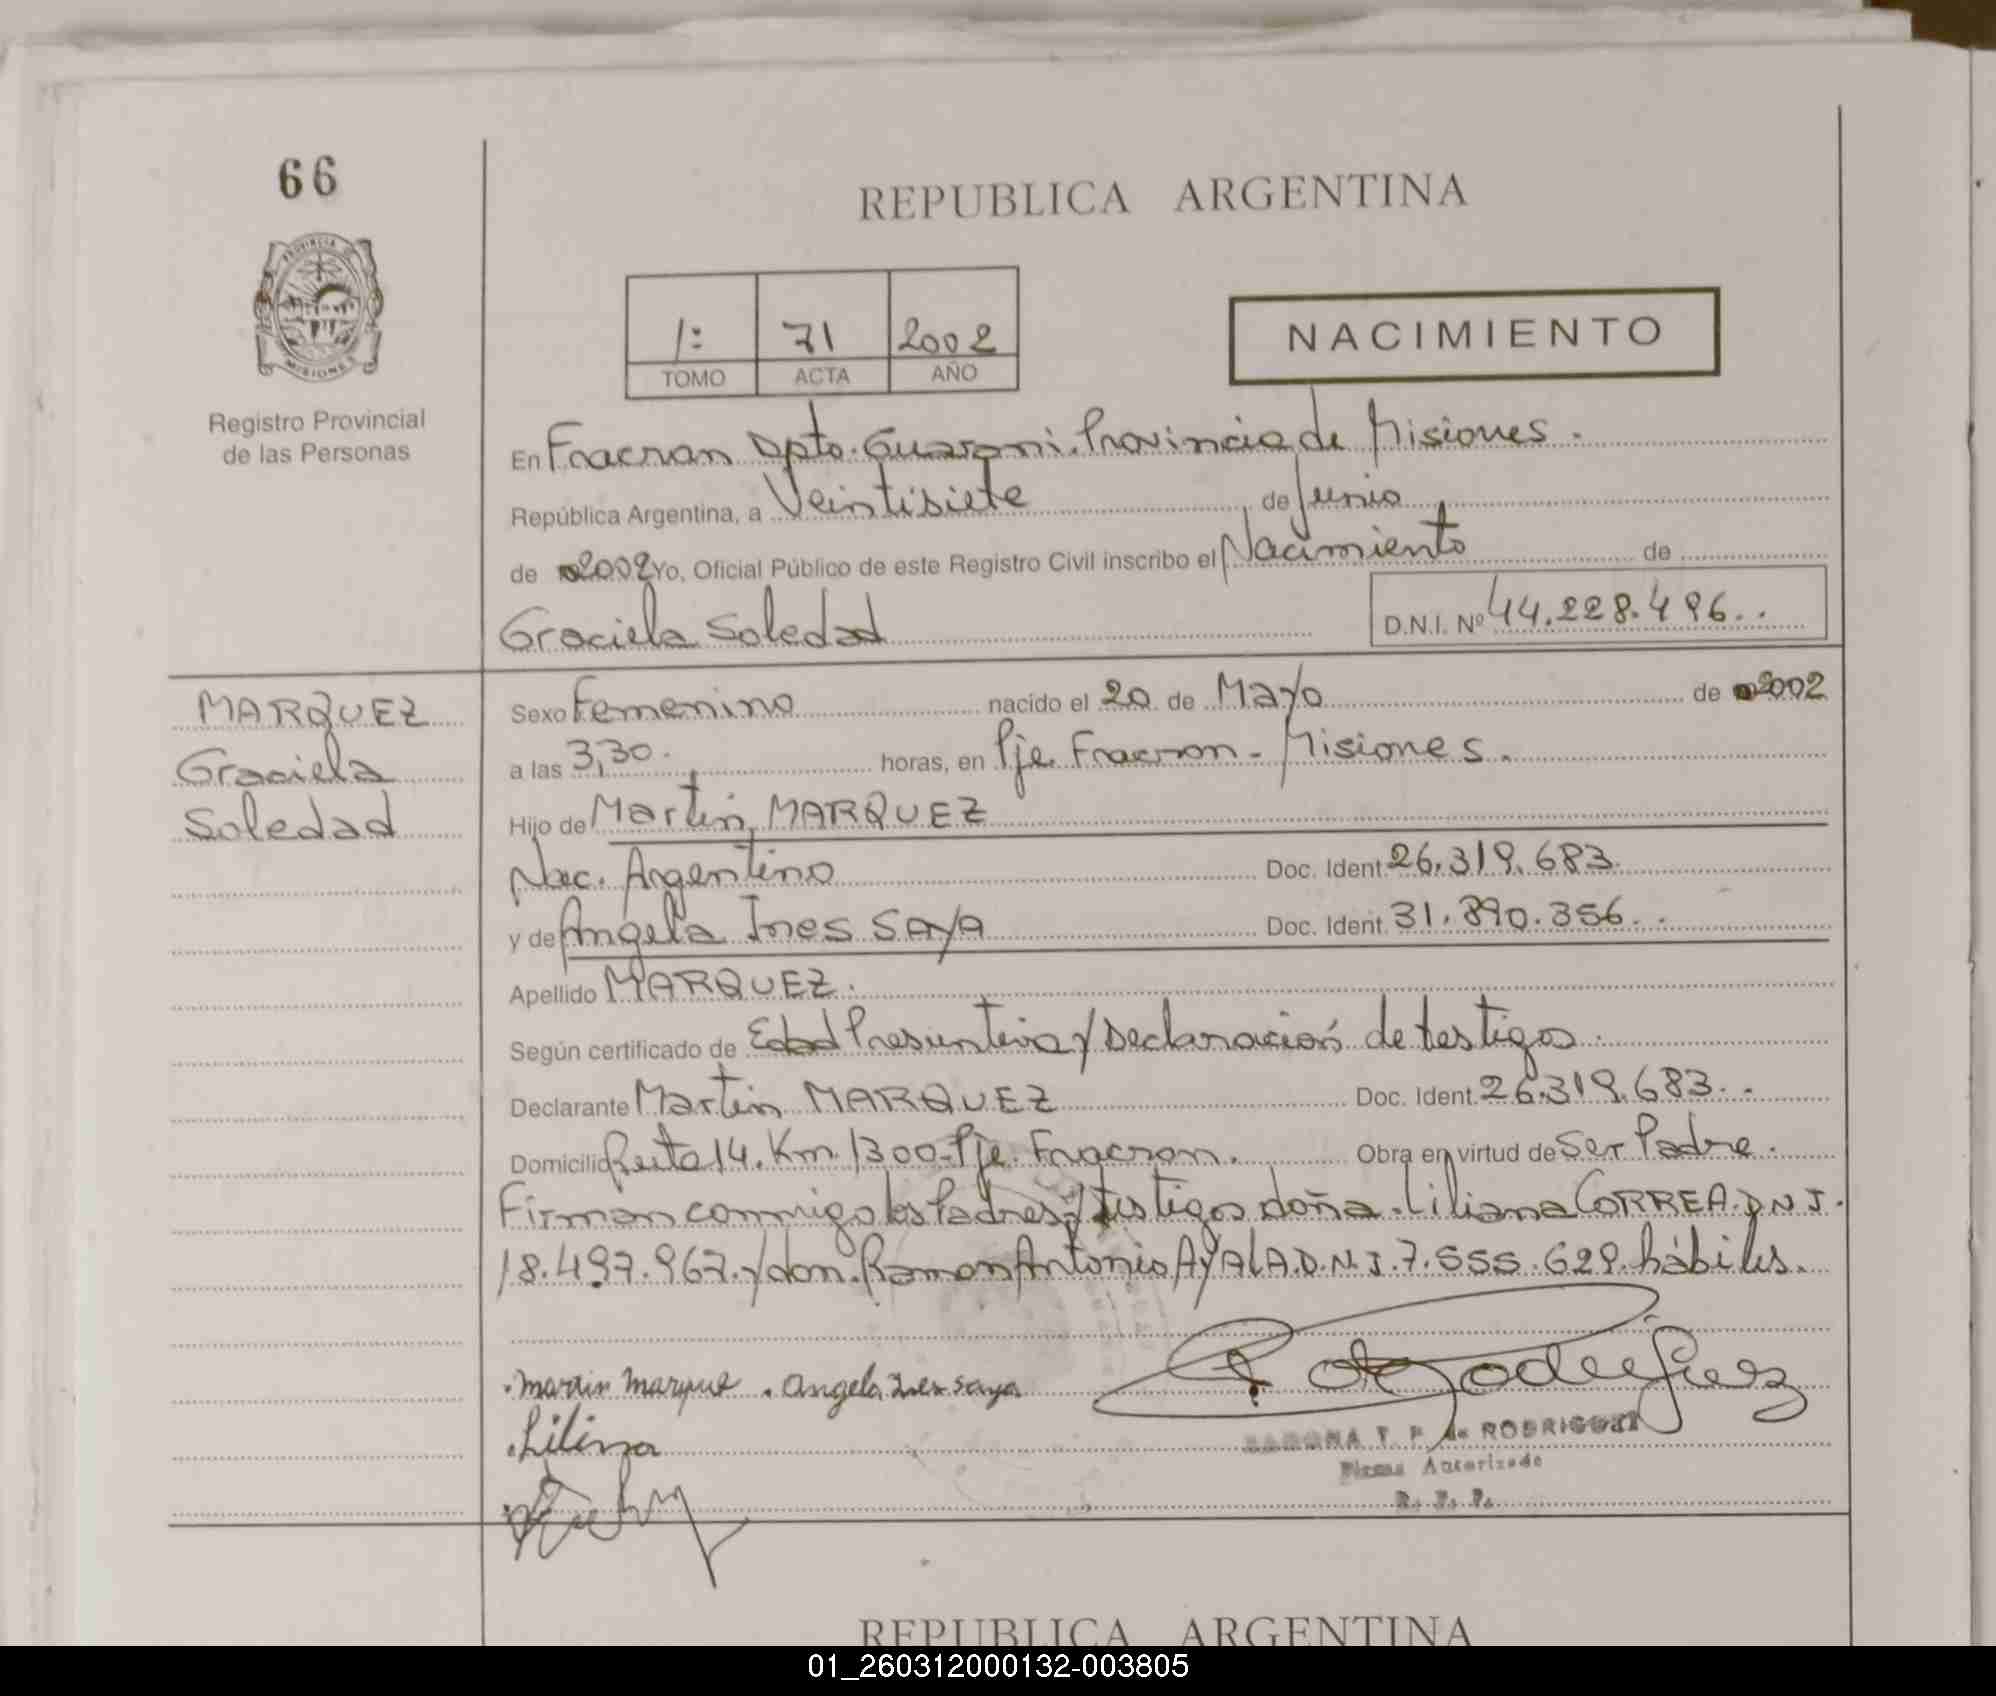 66
REPUBLICA ARGENTINA
PROVINCIA DE
MISIONES
1: 71 2002
TOMO ACTA AÑO
NACIMIENTO
Registro Provincial
de las Personas
En Fracran Dpto. Guarani. Provincia de Misiones.
República Argentina, a Veintisiete de Junio
de 2002 Yo, Oficial Público de este Registro Civil inscribo el Nacimiento de
Graciela Soledad D.N.I. Nº 44.228.496..
MARQUEZ
Graciela
Soledad
Sexo Femenino nacido el 20 de Mayo de 2002
a las 3,30. horas, en Pje. Fracran - Misiones.
Hijo de Martin MARQUEZ
Nac. Argentino Doc. Ident. 26.319.683.
y de Angela Ines SAYA Doc. Ident. 31.890.356..
Apellido MARQUEZ.
Según certificado de Edad Presuntiva y Declaración de testigos.
Declarante Martin MARQUEZ Doc. Ident. 26.319.683..
Domicilio Ruta 14. Km. 1300-Pje. Fracran. Obra en virtud de Ser Padre.
Firman conmigo los Padres y testigos doña. Liliana CORREA. D.N.I.
18.497.967. y don. Ramon Antonio AYALA. D.N.I. 7.555.629. hábiles.
Martin Marque . Angela Ines Saya
Rodriguez
Liliana
T. P. de RODRIGUEZ
Firma Autorizada
R. P. P.
REPUBLICA ARGENTINA
01_260312000132-003805